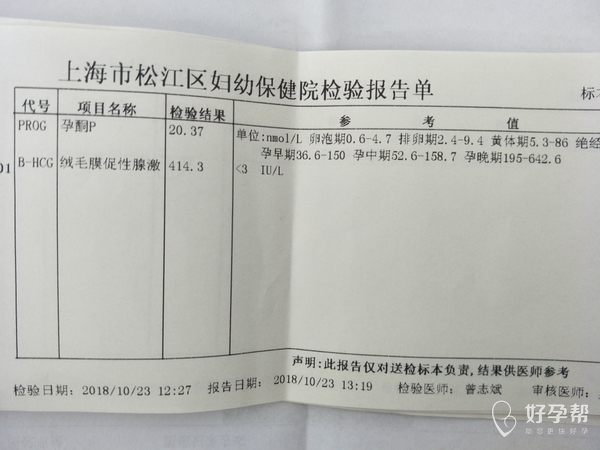 上海市松江区妇幼保健院检验报告单
标本
代号 项目名称 检验结果 参考值
PROG 孕酮P 20.37 单位:nmol/L 卵泡期0.6-4.7 排卵期2.4-9.4 黄体期5.3-86 绝经
孕早期36.6-150 孕中期52.6-158.7 孕晚期195-642.6
01 B-HCG 绒毛膜促性腺激 414.3 <3 IU/L
声明:此报告仅对送检标本负责,结果供医师参考
检验日期: 2018/10/23 12:27 报告日期: 2018/10/23 13:19 检验医师: 曾志斌 审核医师:
好孕帮
助您更快好孕